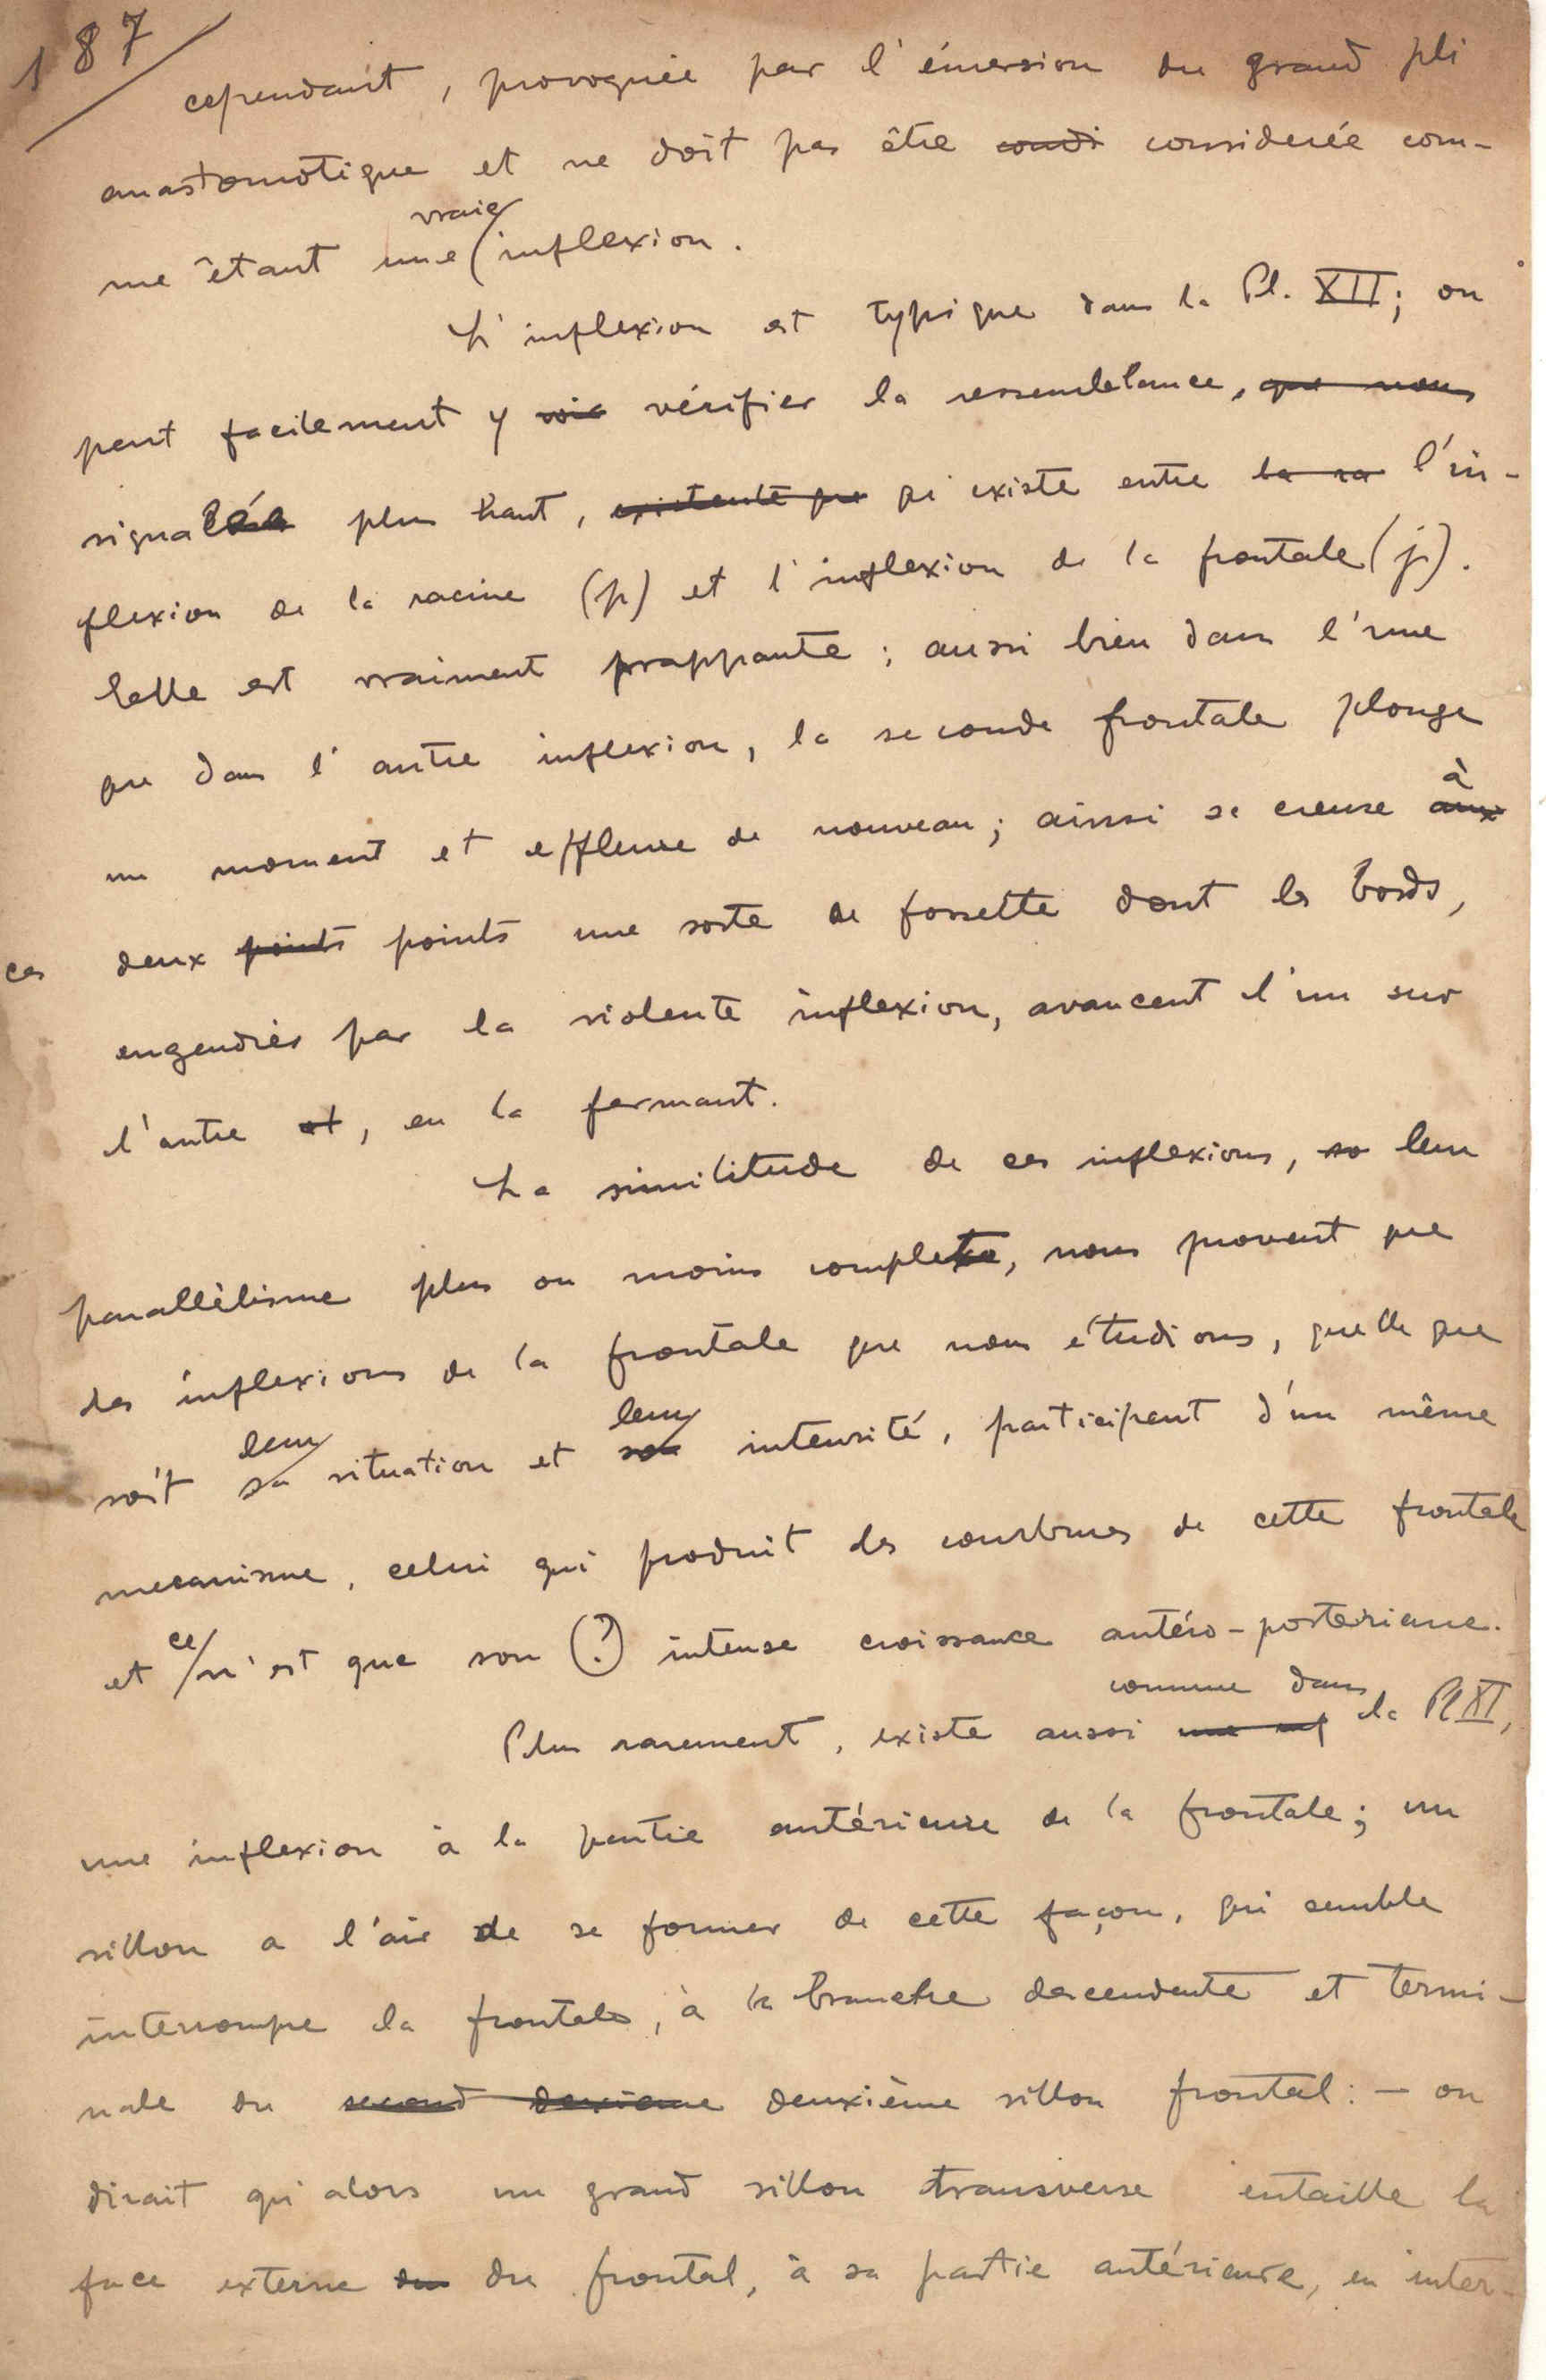 187
cependant, provoquée par l'émersion du grand pli
anastomotique et ne doit pas être condi considerée com-
vraie
me étant une inflexion.
L'inflexion est typique dans la Pl. XII; on
peut facilement y voir vérifier la ressemblance, que nous
signalée plus haut, existente que qi existe entre la ra l'in-
flexion de la racine (p) et l'inflexion de la frontale (j).
Celle est vraiment frappante; aussi bien dans l'une
que dans l'autre inflexion, la seconde frontale plonge
à
un moment et effleure de nouveau; ainsi se creuse aux
ces deux points points une sorte de fossette dont les bords,
engendrés par la violente inflexion, avancent l'un sur
l'autre et, en la fermant.
La similitude de ces inflexions, sa leur
parallélisme plus ou moins complete, nous prouvent que
les inflexions de la frontale que nous étudions, quelle que
leur leur
soit sa situation et son intensité, participent d'un même
mecanisme, celui qui produit les courbures de cette frontale
ce
et n'est que son (?) intense croissance antéro-posterieure.
comme dans
Plus rarement, existe aussi une inf la Pl XI,
une inflexion à la partie antérieure de la frontale; un
sillon a l'air de se former de cette façon, qui semble
interrompre la frontale, à la branche descendente et termi-
nale du second deuxieme deuxième sillon frontal: - on
dirait qu'alors un grand sillon transverse entaille la
face externe du du frontal, à sa partie antérieure, en inter-